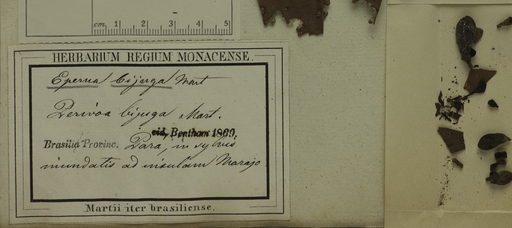 cm. 1 2 3 4 5
HERBARIUM REGIUM MONACENSE.
Eperua bijuga Mart
Parivoa bijuga Mart.
vid. Bentham 1869.
Brasilia Provinc. Para, in sylvis
inundatis ad insulam Marajo
Martii iter brasiliense.